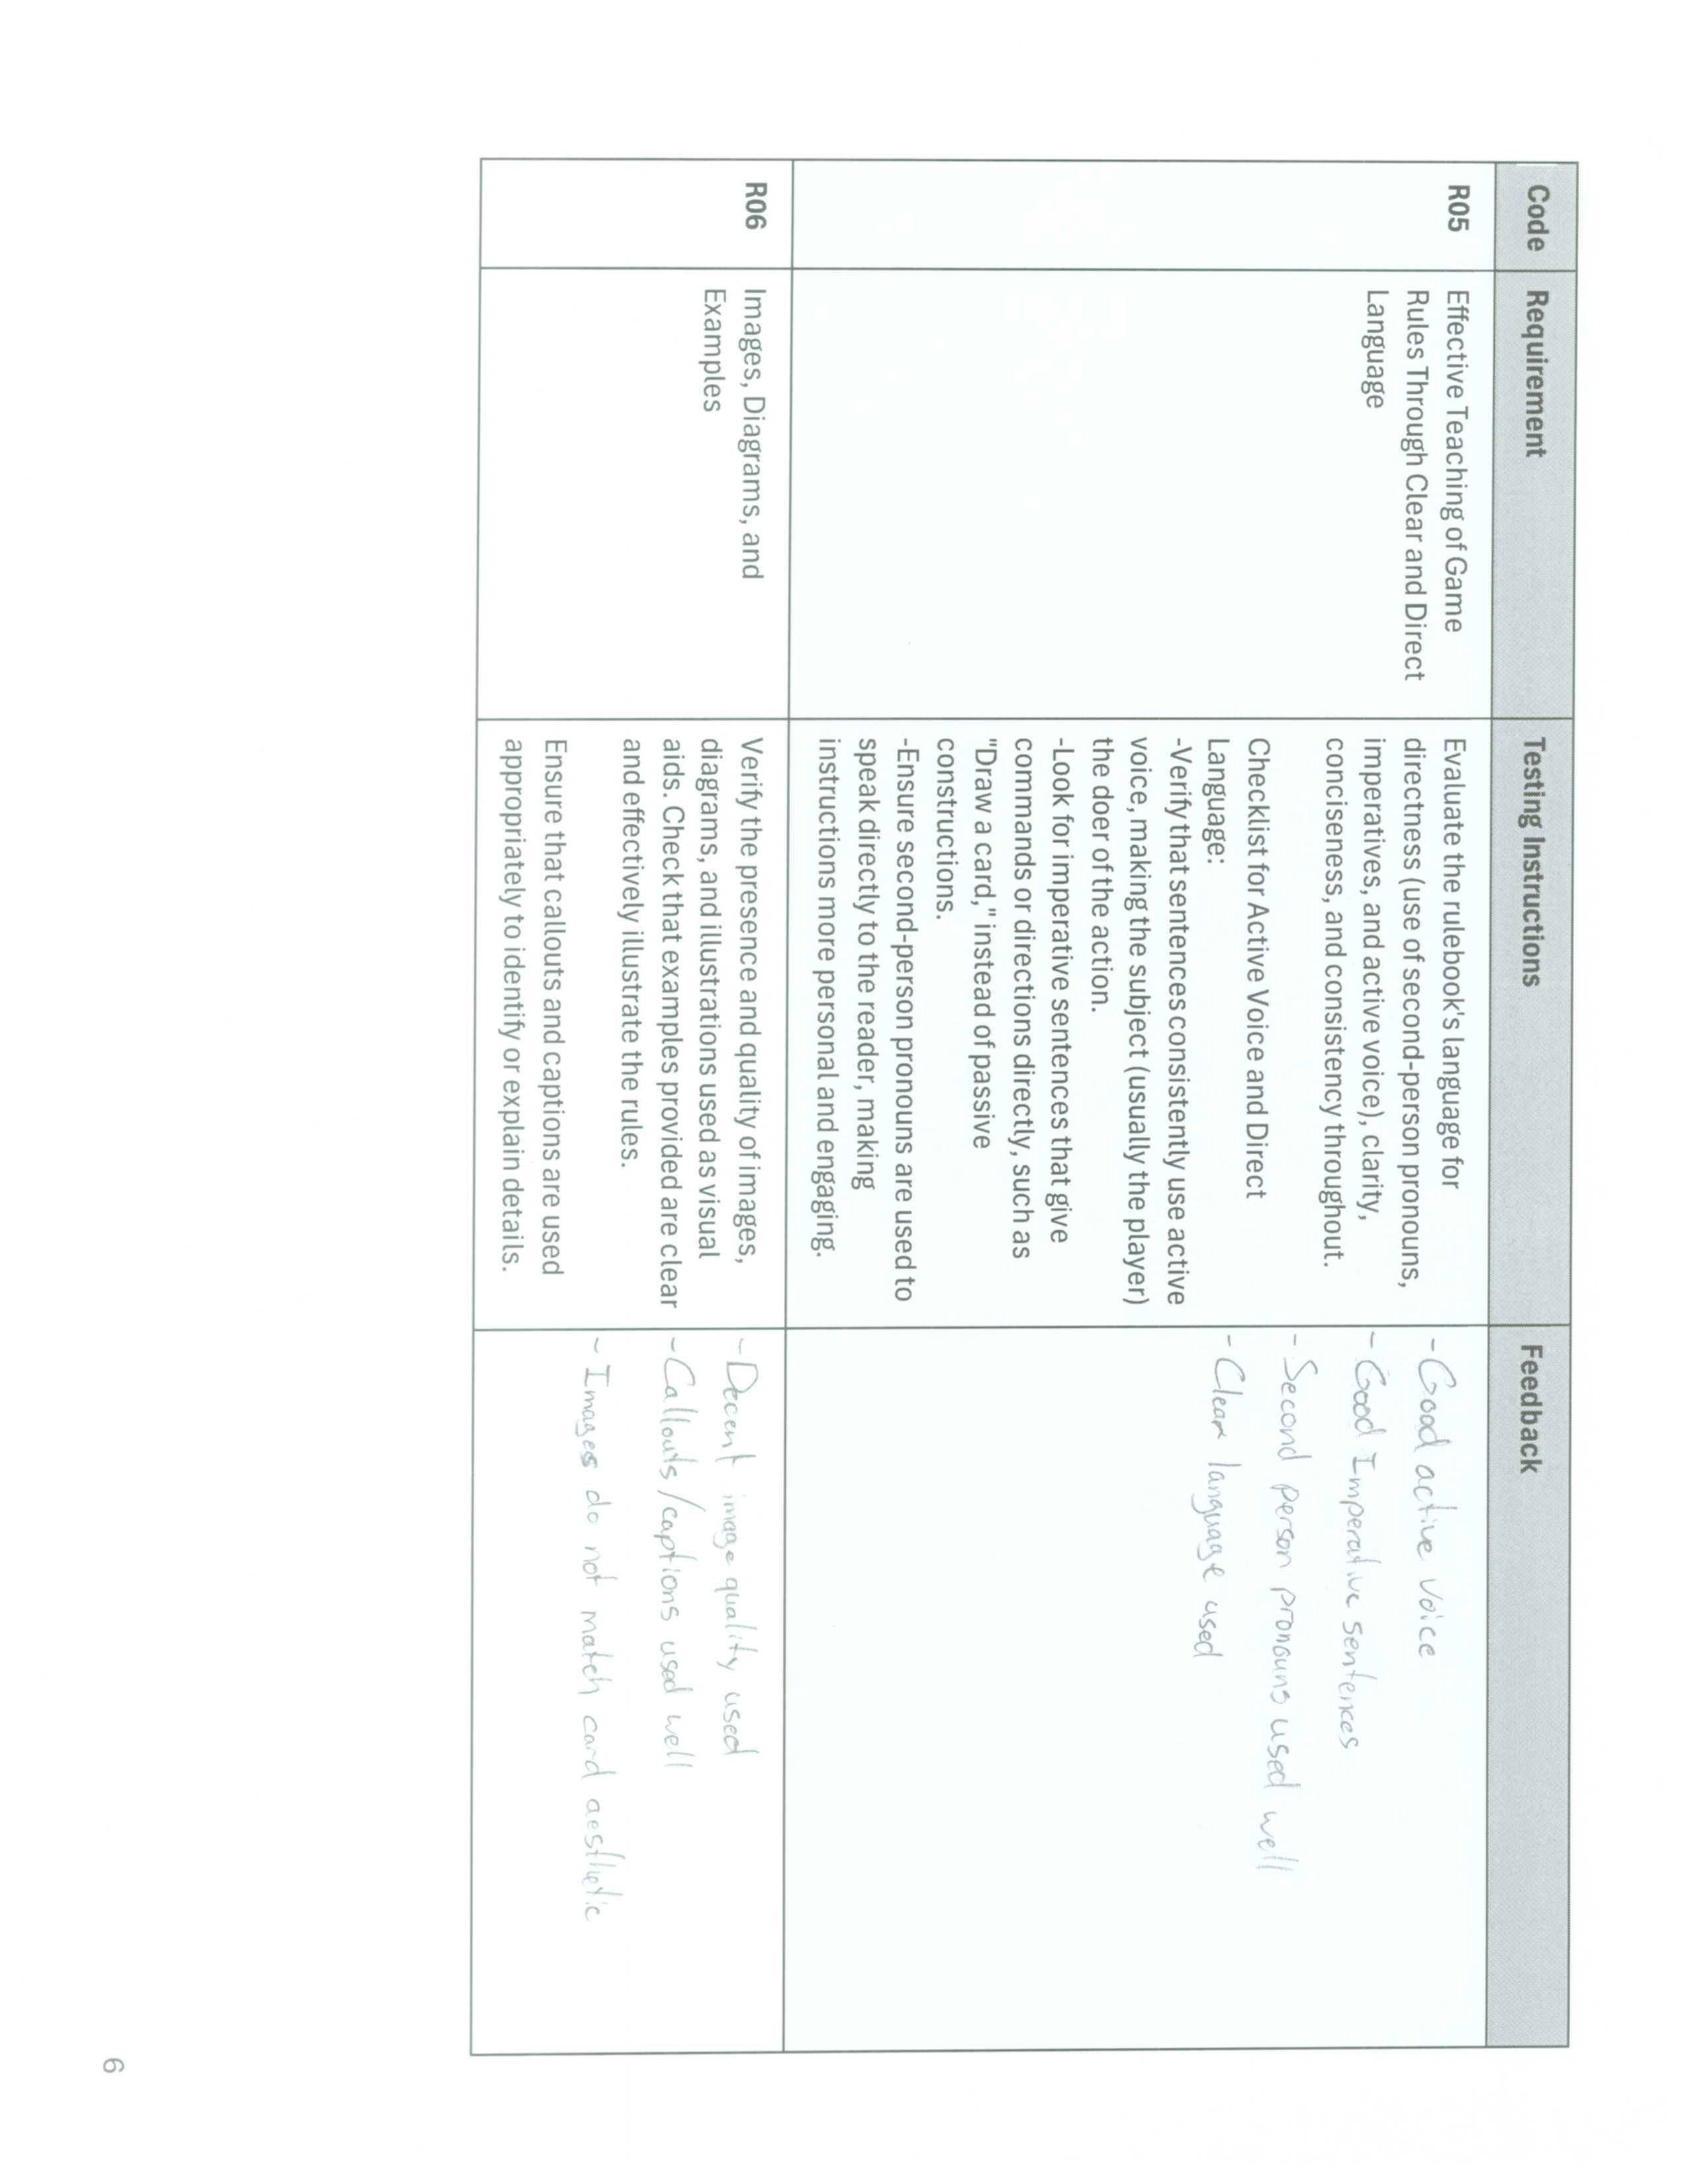 Code Requirement Testing Instructions Feedback
R05
Effective Teaching of Game
Rules Through Clear and Direct
Language
Evaluate the rulebook's language for
directness (use of second-person pronouns,
imperatives, and active voice), clarity,
conciseness, and consistency throughout.
Checklist for Active Voice and Direct
Language:
-Verify that sentences consistently use active
voice, making the subject (usually the player)
the doer of the action.
-Look for imperative sentences that give
commands or directions directly, such as
"Draw a card," instead of passive
constructions.
-Ensure second-person pronouns are used to
speak directly to the reader, making
instructions more personal and engaging.
- Good active voice
- Good Imperative sentences
- Second person pronouns used well
- Clear language used
R06
Images, Diagrams, and
Examples
Verify the presence and quality of images,
diagrams, and illustrations used as visual
aids. Check that examples provided are clear
and effectively illustrate the rules.
Ensure that callouts and captions are used
appropriately to identify or explain details.
- Decent image quality used
- Callouts/captions used well
- Images do not match card aesthetic
6